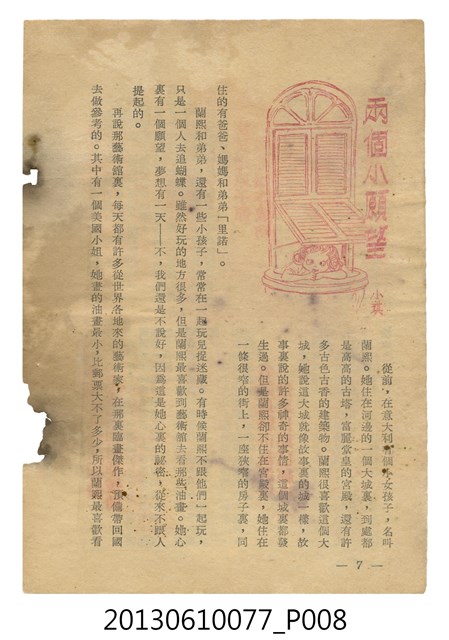 兩個小願望
小英
從前，在意大利有個小女孩子，名叫
蘭熙。她住在河邊的一個大城裏，到處都
是高高的古塔，富麗堂皇的宮殿，還有許
多古色古香的建築物。蘭熙很喜歡這個大
城，她說這大城就像故事裏的城一樣，故
事裏說的許多神奇的事情，這個城裏都發
生過。但是蘭熙卻不住在宮殿裏，她住在
一條很窄的街上，一座狹窄的房子裏，同
住的有爸爸、媽媽和弟弟「里諾」。
蘭熙和弟弟，還有一些小孩子，常常在一起玩兒捉迷藏。有時候蘭熙不跟他們一起玩，
只是一個人去追蝴蝶。雖然好玩的地方很多，但是蘭熙最喜歡到藝術館去看那些油畫。她心
裏有一個願望，夢想有一天——不，我們還是不說好，因爲這是她心裏的秘密，從來不跟人
提起的。
再說那藝術館裏，每天都有許多從世界各地來的藝術家，在那裏臨畫傑作，預備帶回國
去做參考的。其中有一個美國小姐，她畫的油畫最小，比郵票大不了多少，所以蘭熙最喜歡看
— 7 —
20130610077_P008